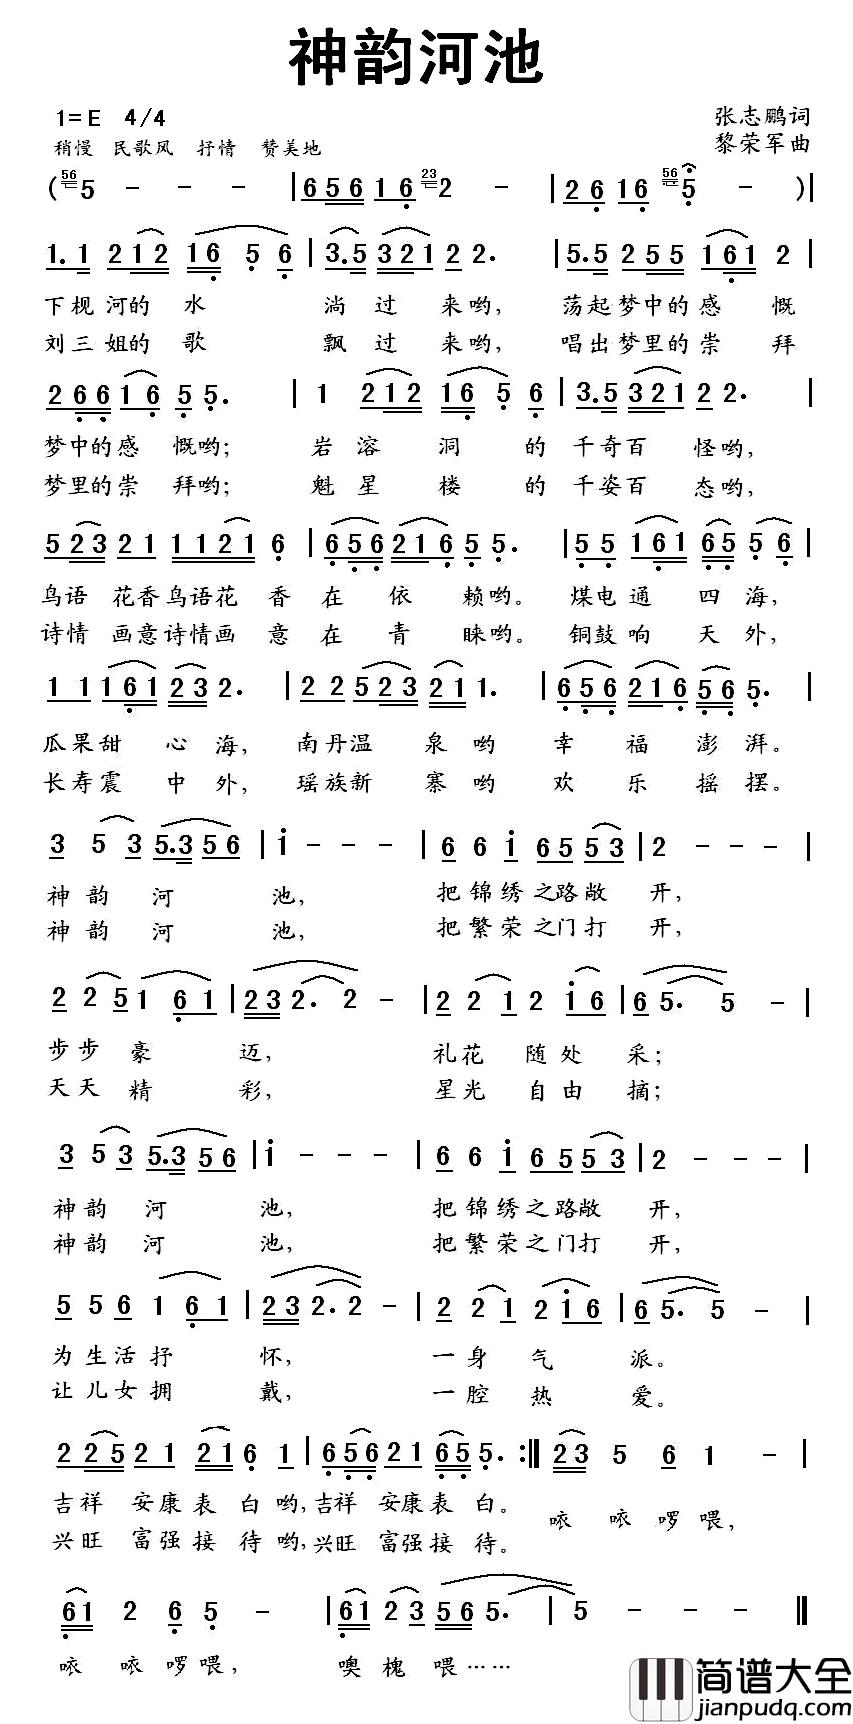 神韵河池
1=E 4/4
张志鹏词
稍慢 民歌风 抒情 赞美地
黎荣军曲
( 56 5 - - | 6 5 6 1 6 23 2 - | 2 6 1 6 56 5 - ) |
1. 1 2 1 2 1 6 5 6 | 3. 5 3 2 1 2 2. | 5. 5 2 5 5 1 6 1 2 |
下枧河的水 淌过来哟, 荡起梦中的感慨
刘三姐的歌 飘过来哟, 唱出梦里的崇拜
2 6 6 1 6 5 5. | 1 2 1 2 1 6 5 6 | 3. 5 3 2 1 2 2. |
梦中的感慨哟; 岩溶洞的千奇百怪哟,
梦里的崇拜哟; 魁星楼的千姿百态哟,
5 2 3 2 1 1 1 2 1 6 | 6 5 6 2 1 6 5 5. | 5 5 1 6 1 6 5 5 6 |
鸟语花香鸟语花香在依赖哟。煤电通四海,
诗情画意诗情画意在青睐哟。铜鼓响天外,
1 1 1 6 1 2 3 2. | 2 2 5 2 3 2 1 1. | 6 5 6 2 1 6 5 6 5. |
瓜果甜心海, 南丹温泉哟幸福澎湃。
长寿震中外, 瑶族新寨哟欢乐摇摆。
3 5 3 5. 3 5 6 | i - - - | 6 6 i 6 5 5 3 | 2 - - - |
神韵河池, 把锦绣之路敞开,
神韵河池, 把繁荣之门打开,
2 2 5 1 6 1 | 2 3 2. 2 - | 2 2 1 2 i 6 | 6 5. 5 - |
步步豪迈, 礼花随处采;
天天精彩, 星光自由摘;
3 5 3 5. 3 5 6 | i - - - | 6 6 i 6 5 5 3 | 2 - - - |
神韵河池, 把锦绣之路敞开,
神韵河池, 把繁荣之门打开,
5 5 6 1 6 1 | 2 3 2. 2 - | 2 2 1 2 i 6 | 6 5. 5 - |
为生活抒怀, 一身气派。
让儿女拥戴, 一腔热爱。
2 2 5 2 1 2 1 6 1 | 6 5 6 2 1 6 5 5. :‖ 2 3 5 6 1 - |
吉祥安康表白哟,吉祥安康表白。 哝哝啰喂,
兴旺富强接待哟,兴旺富强接待。
6 1 2 6 5 - | 6 1 2 3 5 6 5. | 5 - - - ‖
哝哝啰喂, 噢槐喂……
简谱大全
jianpudq.com